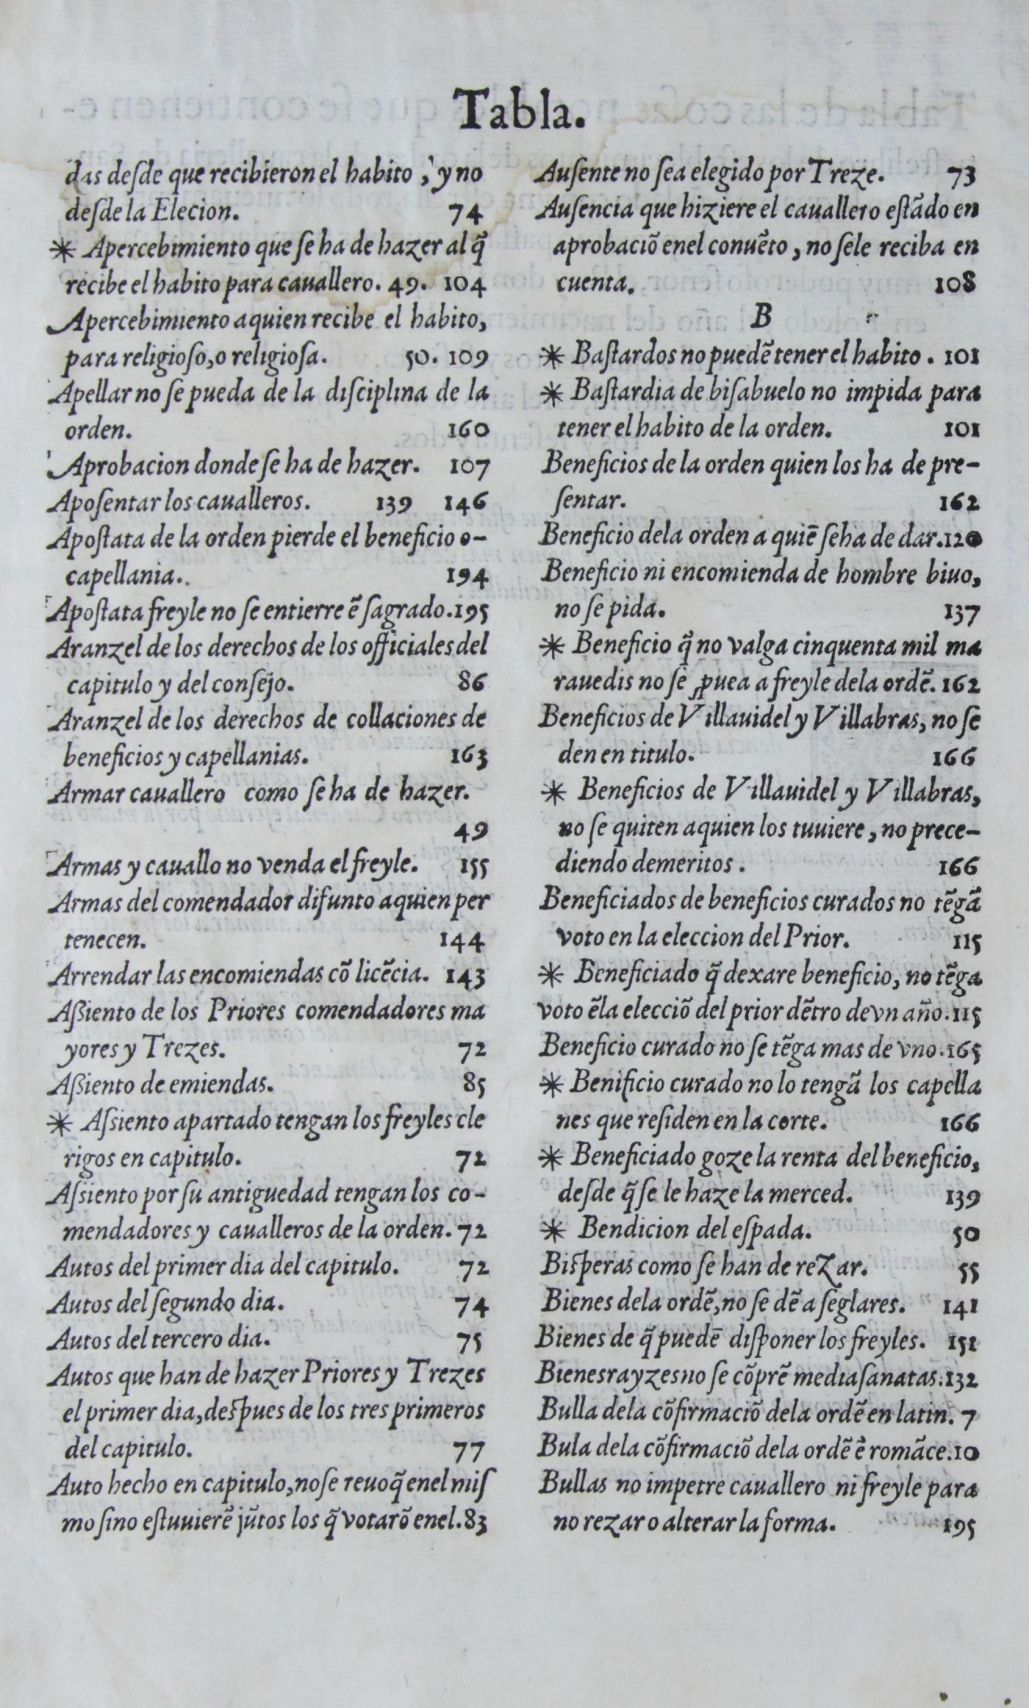 Tabla.
das deſde que recibieron el habito, y no
deſde la Elecion. 74
* Apercebimiento que ſe ha de hazer al q̃
recibe el habito para cauallero. 49. 104
Apercebimiento aquien recibe el habito,
para religioſo, o religioſa. 50. 109
Apellar no ſe pueda de la diſciplina de la
orden. 160
Aprobacion donde ſe ha de hazer. 107
Apoſentar los caualleros. 139 146
Apoſtata de la orden pierde el beneficio o-
capellania. 194
Apoſtata freyle no ſe entierre ẽ ſagrado. 195
Aranzel de los derechos de los officiales del
capitulo y del conſejo. 86
Aranzel de los derechos de collaciones de
beneficios y capellanias. 163
Armar cauallero como ſe ha de hazer.
49
Armas y cauallo no venda el freyle. 155
Armas del comendador difunto aquien per
tenecen. 144
Arrendar las encomiendas cõ licẽcia. 143
Aſsiento de los Priores comendadores ma
yores y Trezes. 72
Aſsiento de emiendas. 85
* Aſsiento apartado tengan los freyles cle
rigos en capitulo. 72
Aſsiento por ſu antiguedad tengan los co-
mendadores y caualleros de la orden. 72
Autos del primer dia del capitulo. 72
Autos del ſegundo dia. 74
Autos del tercero dia. 75
Autos que han de hazer Priores y Trezes
el primer dia, deſpues de los tres primeros
del capitulo. 77
Auto hecho en capitulo, no ſe reuoq̃ enel miſ
mo ſino eſtuuierẽ jũtos los q̃ votarõ enel. 83
Auſente no ſea elegido por Treze. 73
Auſencia que hiziere el cauallero eſtãdo en
aprobaciõ enel conuẽto, no ſele reciba en
cuenta. 108
B
* Baſtardos no puedẽ tener el habito. 101
* Baſtardia de biſabuelo no impida para
tener el habito de la orden. 101
Beneficios de la orden quien los ha de pre-
ſentar. 162
Beneficio dela orden a quiẽ ſe ha de dar. 120
Beneficio ni encomienda de hombre biuo,
no ſe pida. 137
* Beneficio q̃ no valga cinquenta mil ma
rauedis no ſe ꝓuea a freyle dela ordẽ. 162
Beneficios de Villauidel y Villabras, no ſe
den en titulo. 166
* Beneficios de Villauidel y Villabras,
no ſe quiten aquien los tuuiere, no prece-
diendo demeritos. 166
Beneficiados de beneficios curados no tẽgã
voto en la eleccion del Prior. 115
* Beneficiado q̃ dexare beneficio, no tẽga
voto ẽla elecciõ del prior dẽtro de vn año. 115
Beneficio curado no ſe tẽga mas de vno. 165
* Benificio curado no lo tengã los capella
nes que reſiden en la corte. 166
* Beneficiado goze la renta del beneficio,
deſde q̃ ſe le haze la merced. 139
* Bendicion del eſpada. 50
Biſperas como ſe han de reZar. 55
Bienes dela ordẽ, no ſe dẽ a ſeglares. 141
Bienes de q̃ puedẽ diſponer los freyles. 151
Bienes rayzes no ſe cõprẽ mediaſanatas. 132
Bulla dela cõfirmaciõ dela ordẽ en latin. 7
Bula dela cõfirmaciõ dela ordẽ ẽ romãce. 10
Bullas no impetre cauallero ni freyle para
no rezar o alterar la forma. 195